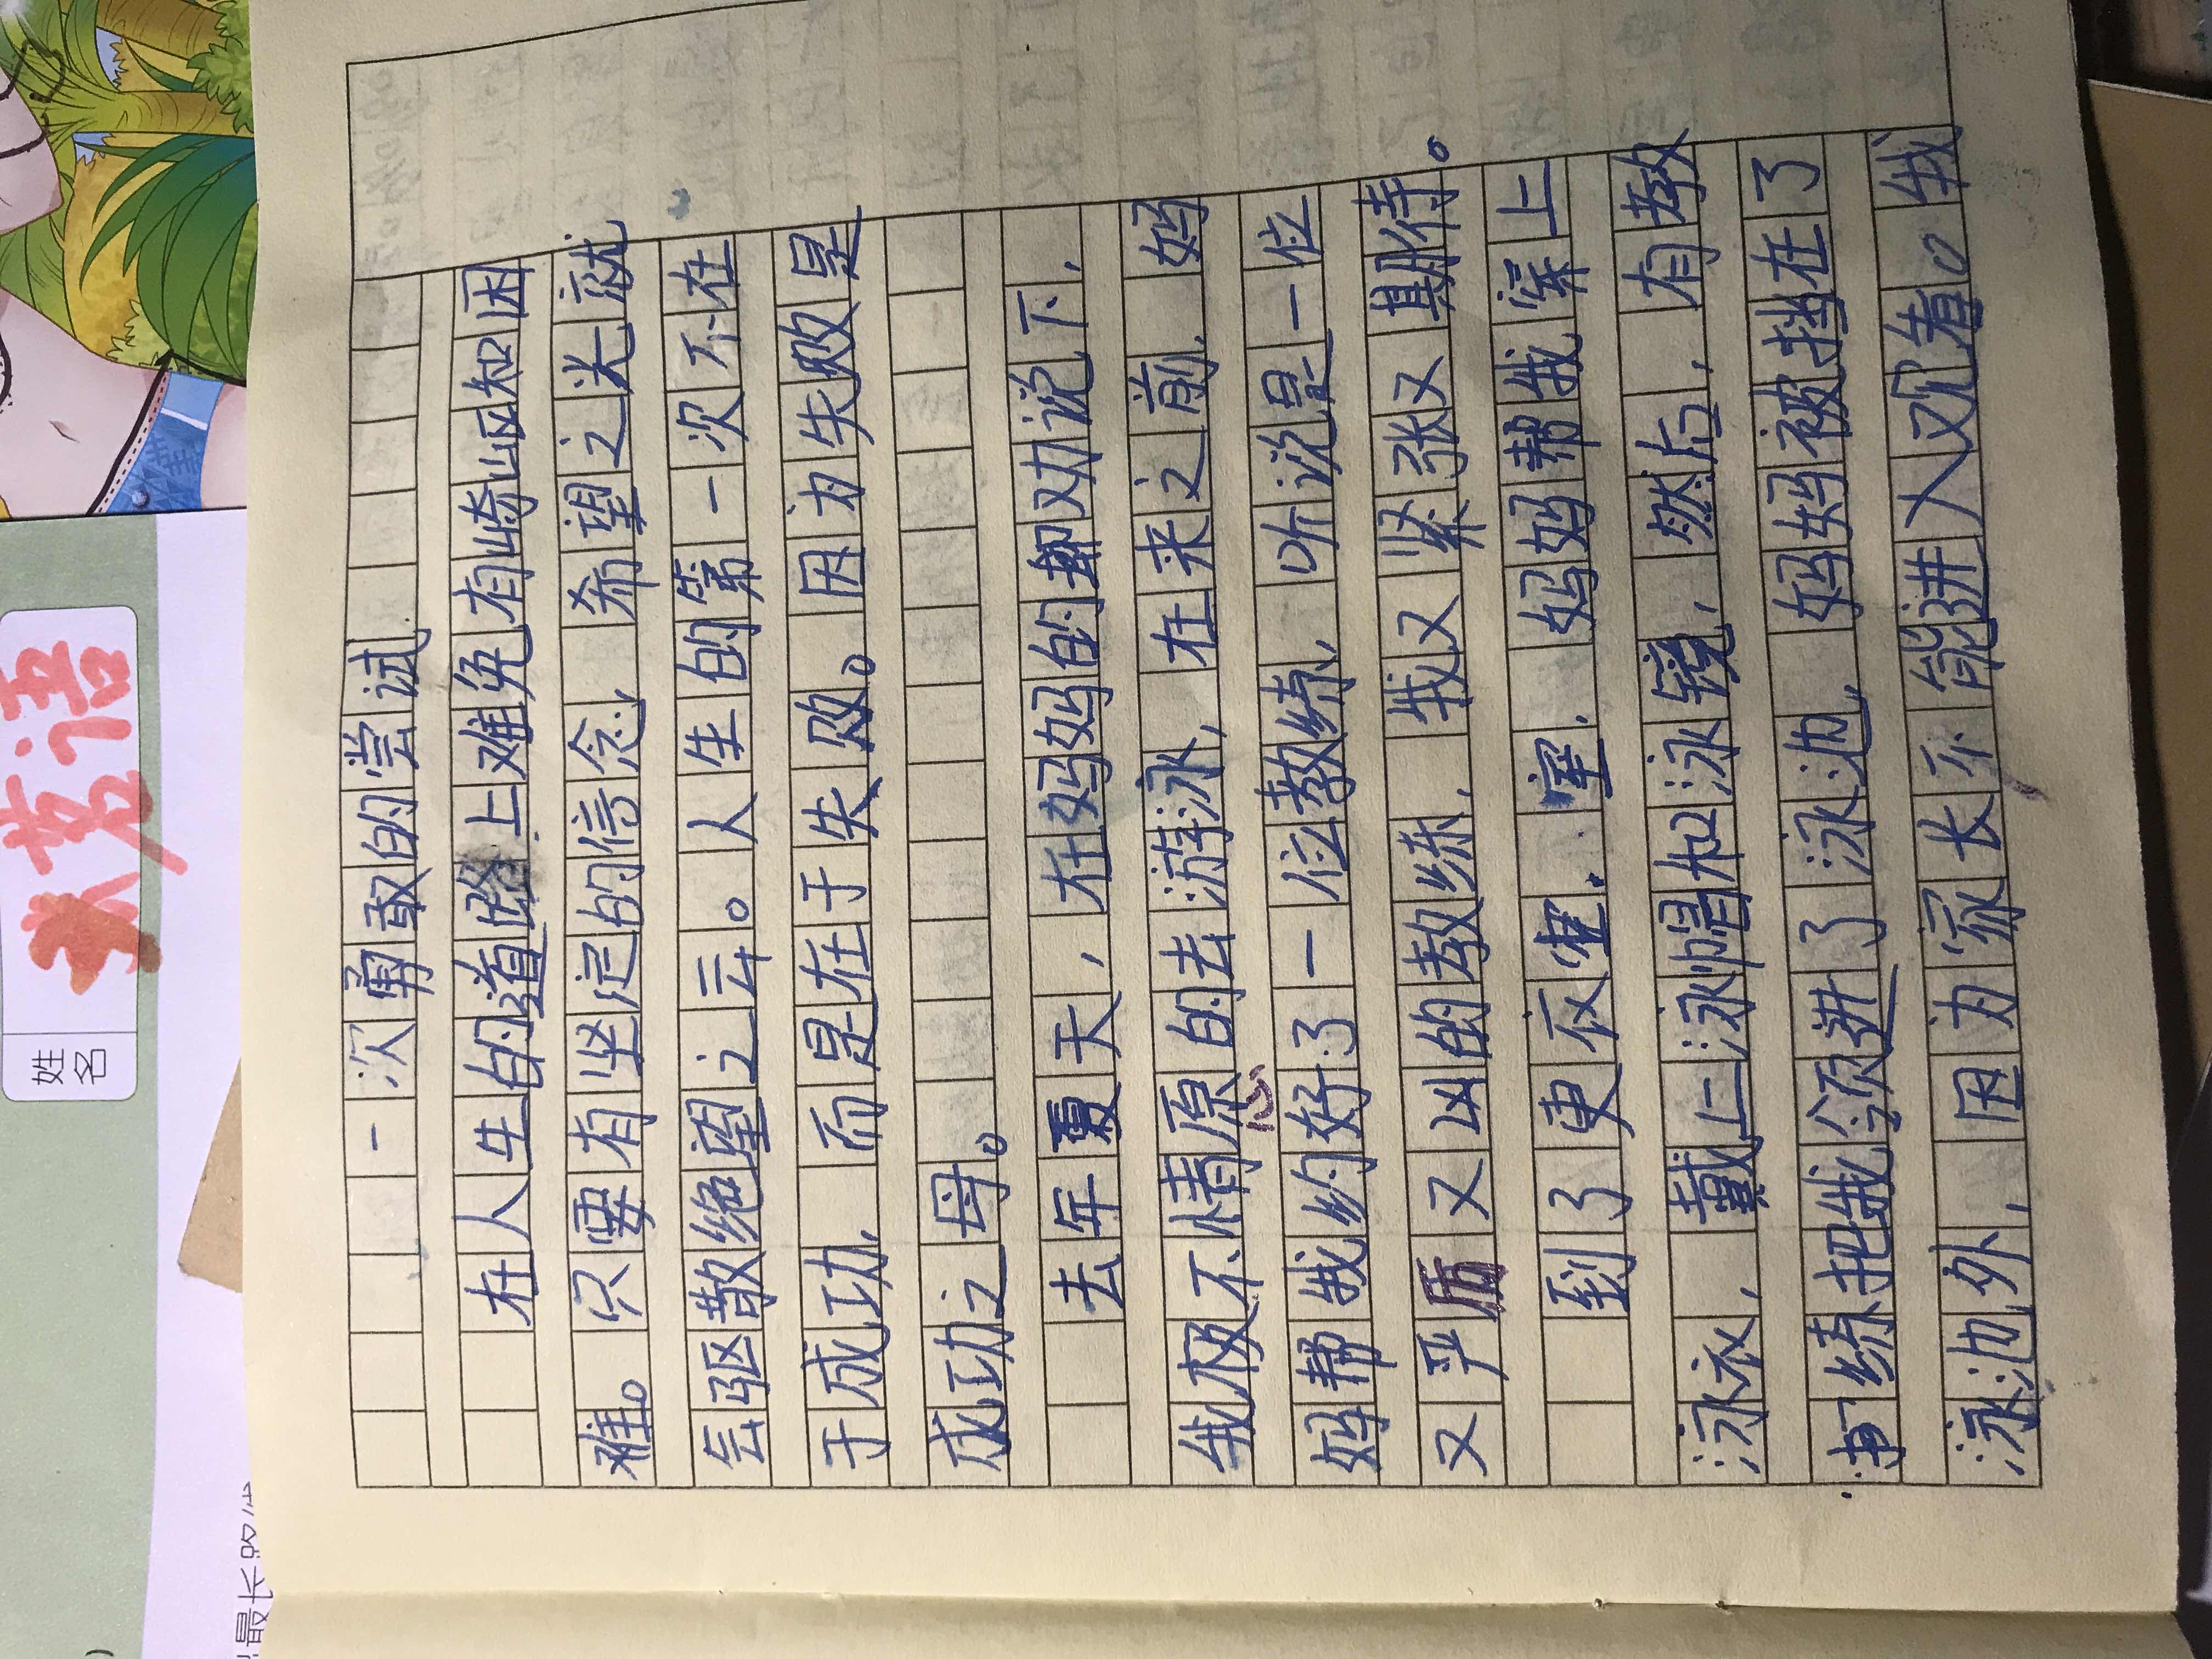 姓名
一次勇敢的尝试
在人生的道路上难免有崎岖和困
难。只要有坚定的信念,希望之光就
会驱散绝望之云。人生的第一次不在
于成功,而是在于失败。因为失败是
成功之母。
去年夏天,在妈妈的劝说下,
我极不情愿的去游泳,在来之前,妈
妈帮我约好了一位教练,听说是一位
又严厉又凶的教练,我又紧张又期待。
到了更衣室,妈妈帮我穿上
泳衣,戴上泳帽和泳镜,然后,有教
练把我领进了泳池,妈妈被挡在了
泳池外,因为家长不能进入观看。我